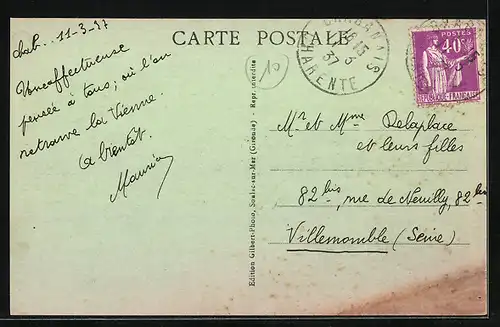 CARTE POSTALE
chab.. 11-3-37
Une affectueuse
pensée à tous; où l'on
retrouve la Vienne.
A bientôt.
10
CHABANAIS
CHARENTE
POSTES
40c
REPUBLIQUE FRANÇAISE
Mr et Mme Delaplace
et leurs filles
82 bis, rue de Neuilly, 82 bis
Villemomble (Seine)
Edition Gilbert-Photo, Soulac-sur-Mer (Gironde) - Repr. interdite